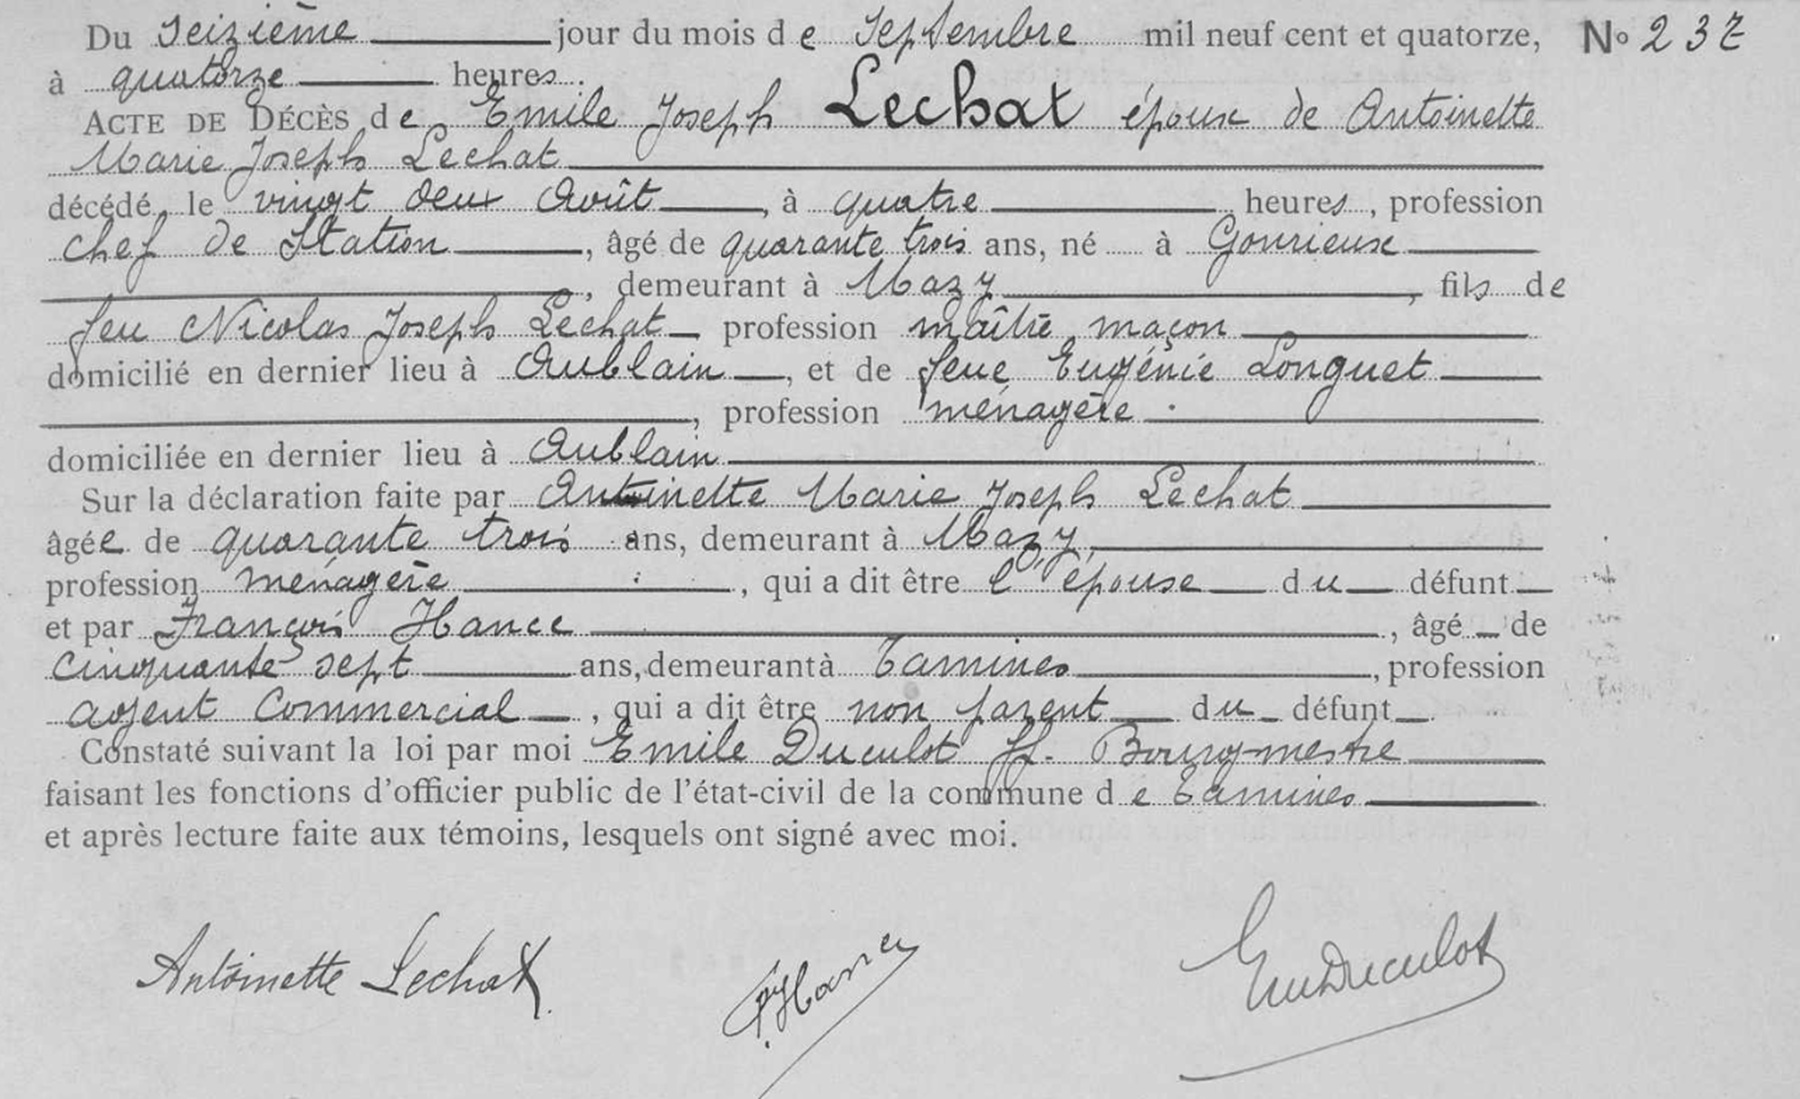 Du seizième jour du mois de Septembre mil neuf cent et quatorze, No 237
à quatorze heures.
ACTE DE DÉCÈS de Emile Joseph Lechat époux de Antoinette
Marie Joseph Lechat
décédé le vingt deux Août, à quatre heures, profession
chef de Station, âgé de quarante trois ans, né à Gonrieux
, demeurant à Mazy, fils de
feu Nicolas Joseph Lechat profession maître maçon
domicilié en dernier lieu à Aublain, et de feue Eugénie Longuet
, profession ménagère
domiciliée en dernier lieu à Aublain
Sur la déclaration faite par Antoinette Marie Joseph Lechat
âgée de quarante trois ans, demeurant à Mazy,
profession ménagère, qui a dit être l'épouse du défunt
et par François Hance, âgé de
cinquante sept ans, demeurant à Tamines, profession
agent Commercial, qui a dit être non parent du défunt.
Constaté suivant la loi par moi Emile Duculot ff. Bourgmestre
faisant les fonctions d'officier public de l'état-civil de la commune de Tamines
et après lecture faite aux témoins, lesquels ont signé avec moi.
Antoinette Lechat F Hance Em Duculot